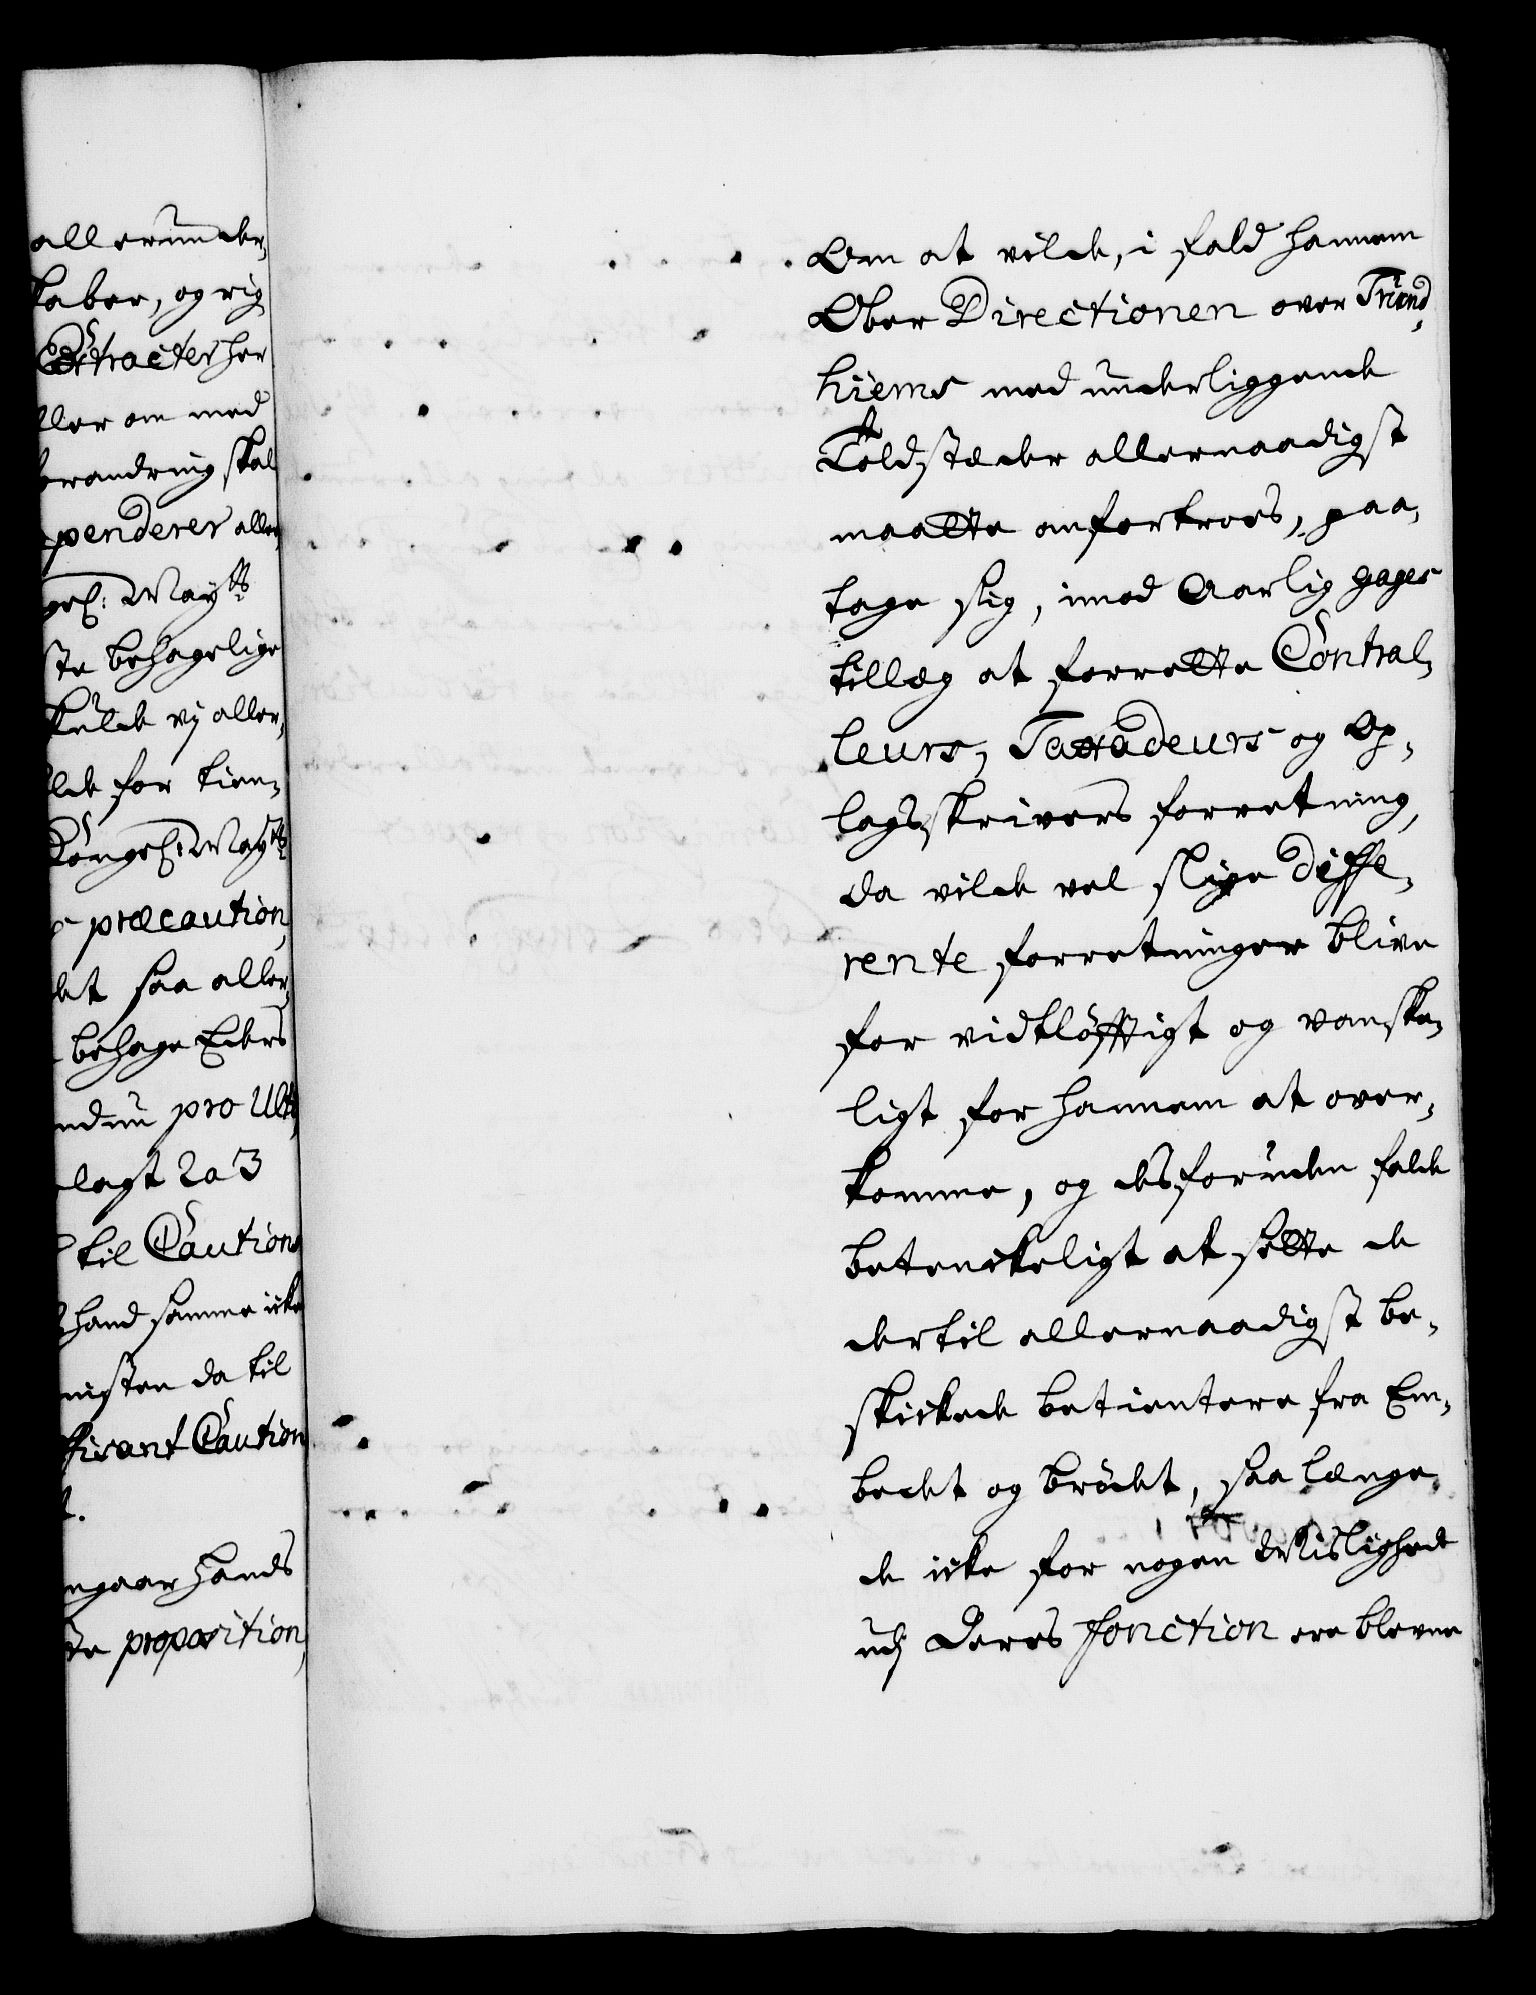 allerunder,
kaber, og rig
Extracter her
ller om med
forandring skal
penderer aller,
gel: Maytts
ste behagelige
kulde vj aller,
lde for tien,
Kongel: Maytts
præcaution,
det saa aller,
behage Eders
nd nu pro Ult:
lagt 2 a 3
til Cautions
hand samme icke
nisten da til
fisant Caution
t.
ngaar hands
te proposition,
Om at vilde, i fald hannem
Ober Directionen over Trund,
hiems med underliggende
Toldstæder allernaadigst
maatte anfortroes, paa,
tage sig, imod Aarlig gages
tillæg at forrette Control,
leurs, Taxadeurs og Op,
lagsskrivers forretning,
da vilde vel slige diffe,
rente forretninger blive
for vidtløfftigt og vanske,
ligt for hannem at over,
komme, og desforuden falde
betenckeligt at sette de
dertil allernaadigst be,
skickede betientere fra Em,
bedet og brödet, saa længe,
de icke for nogen Mislighed
udj Deres fonction ere blevne